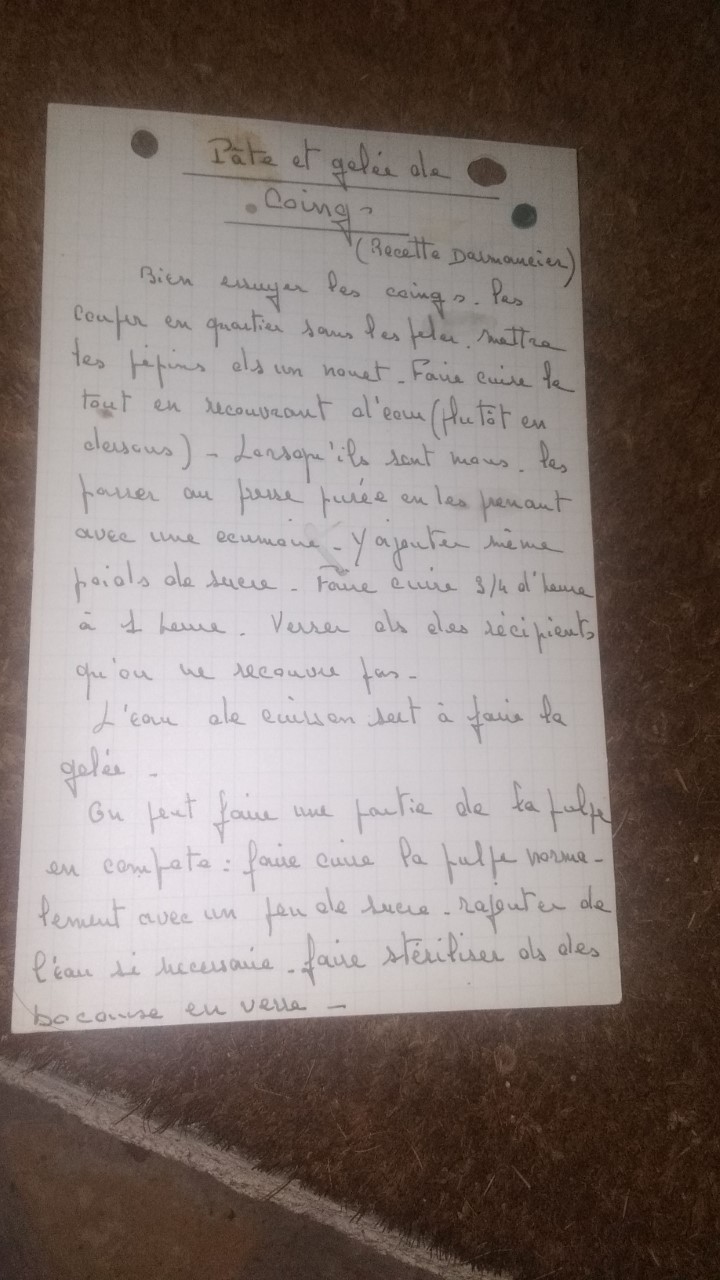 Pâte et gelée de
Coings
(Recette Darmancier)
Bien essuyer les coings. les
couper en quartier sans les peler. Mettre
les pépins ds un nouet - Faire cuire le
tout en recouvrant d'eau (plutôt en
dessous) - Lorsqu'ils sont mous. les
passer au presse purée en les prenant
avec une ecumoire - Y ajouter même
poids de sucre - Faire cuire 3/4 d'heure
à 1 heure. Verser ds des récipients
qu'on ne recouvre pas -
L'eau de cuisson sert à faire la
gelée -
On peut faire une partie de la pulpe
en compote : faire cuire la pulpe norma-
lement avec un peu de sucre - rajouter de
l'eau si necessaire - faire stériliser ds des
bocaux en verre -